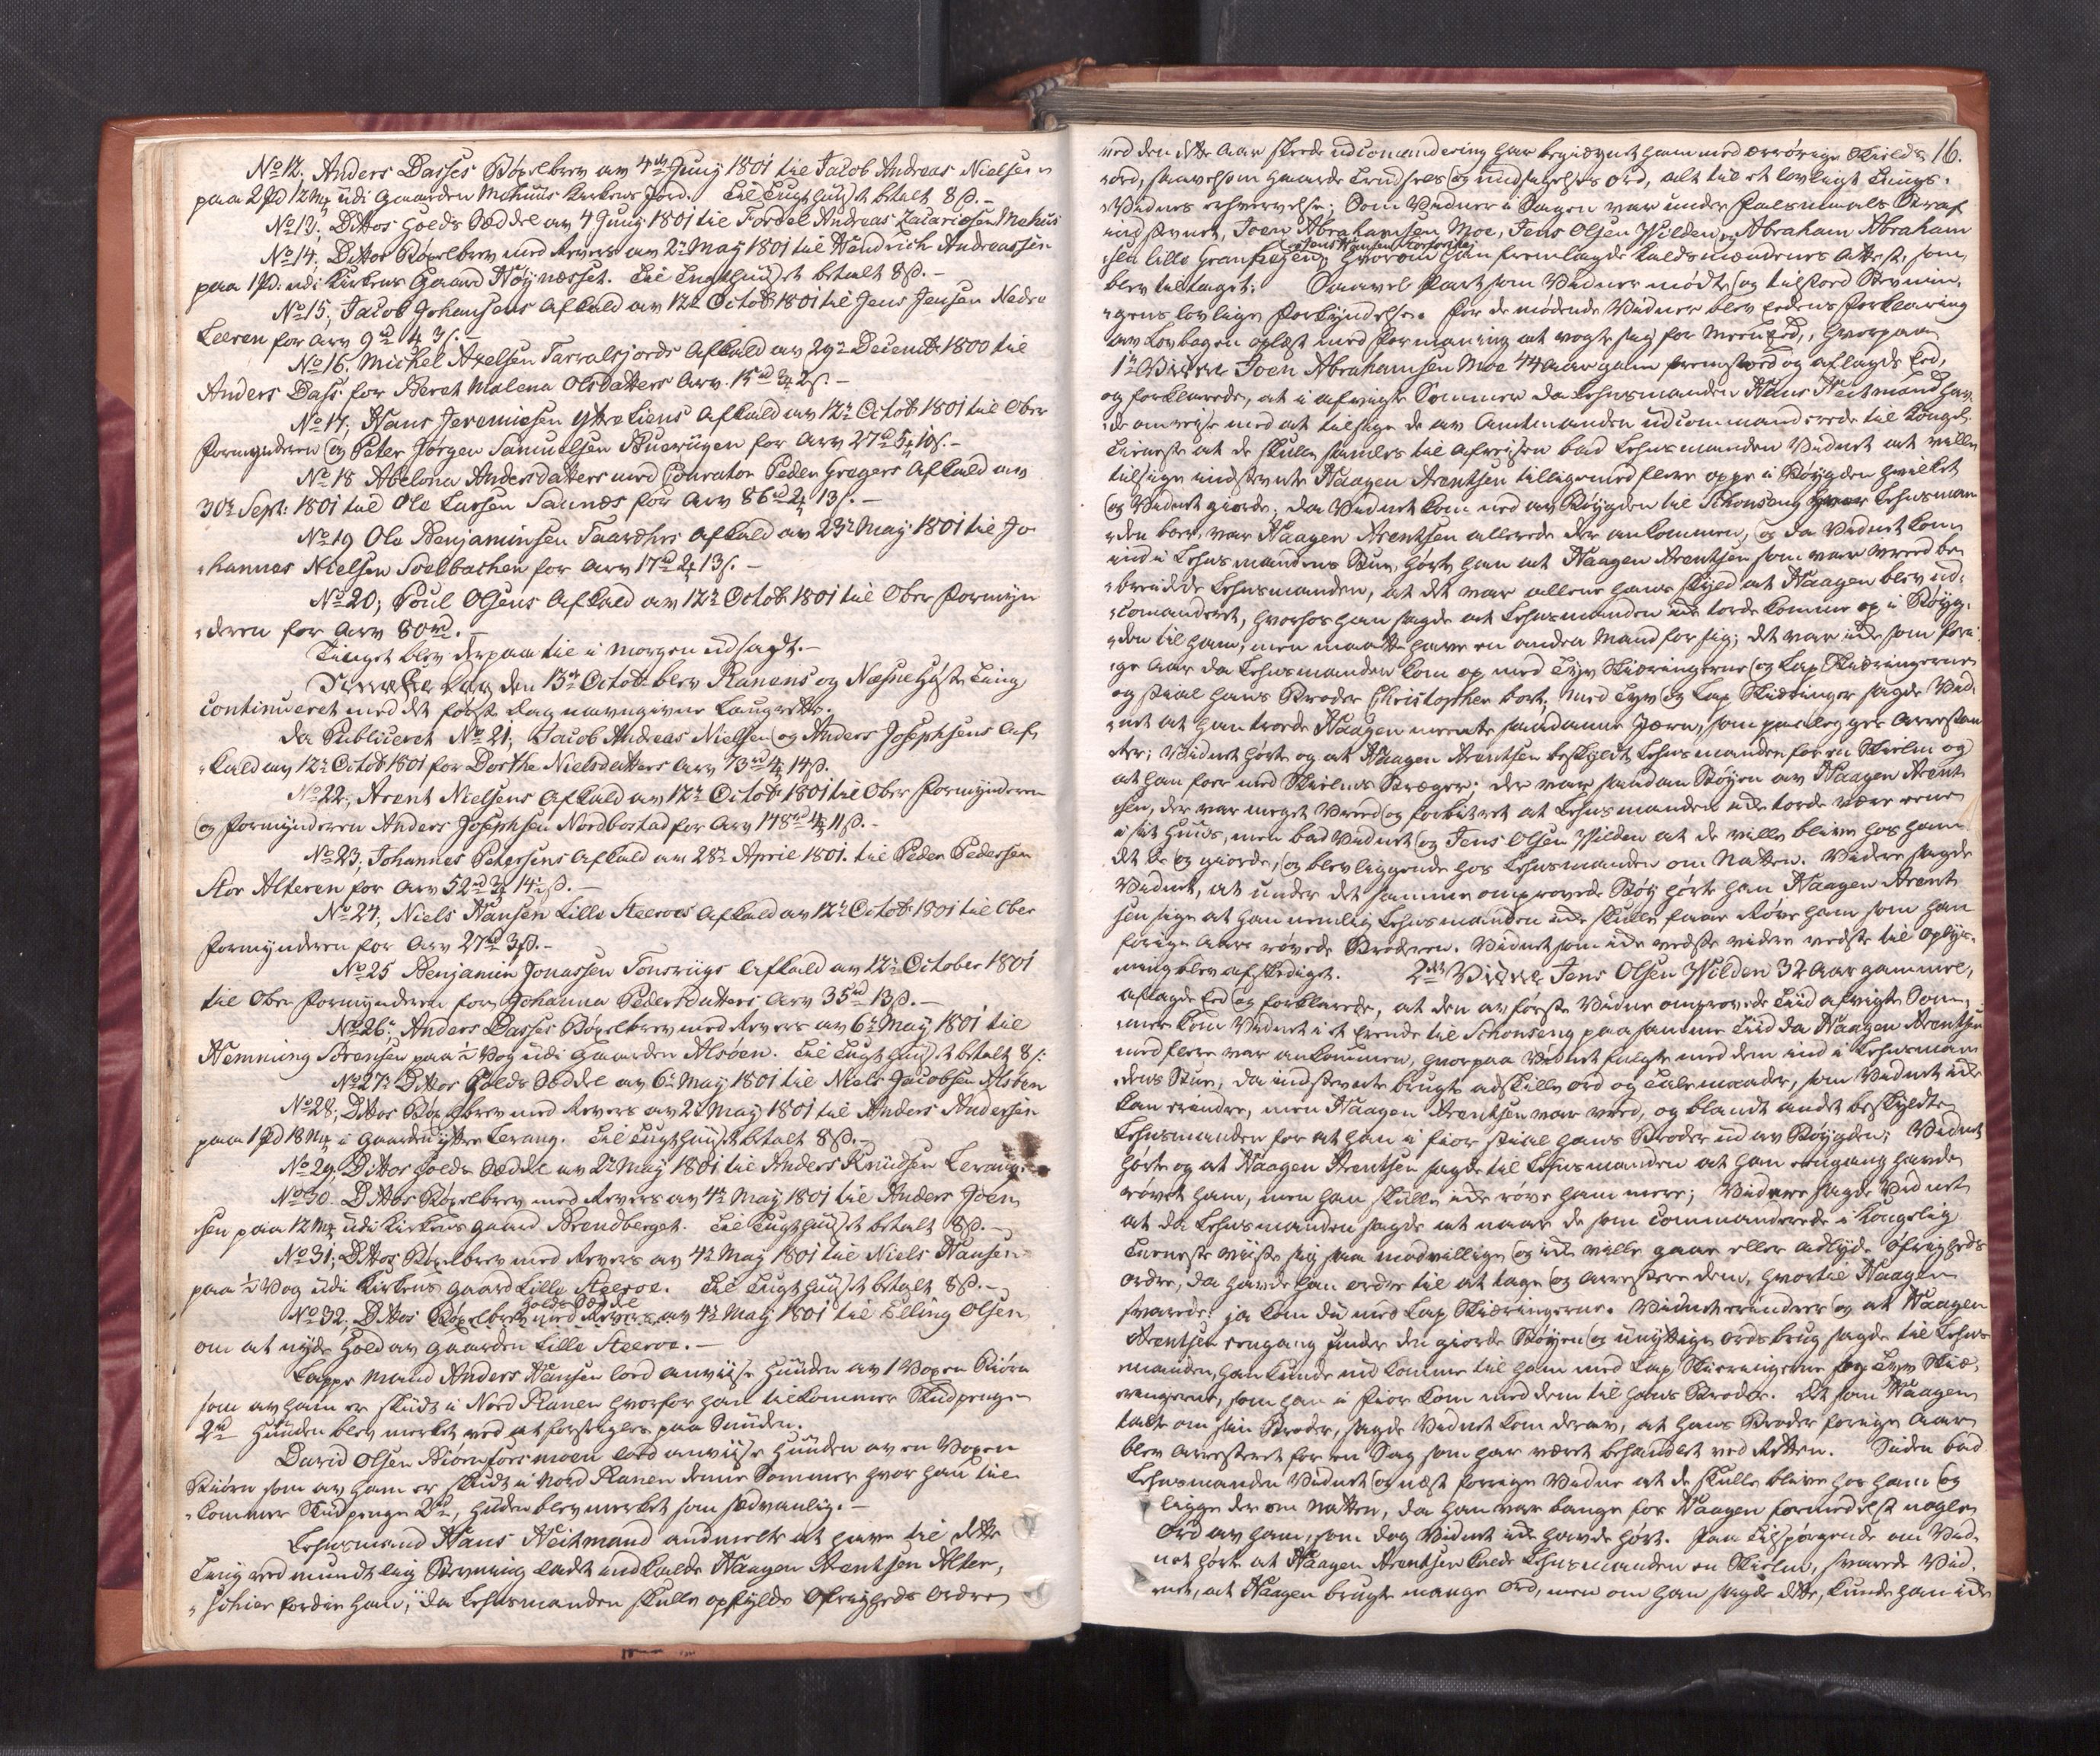 No 12. Anders Dasses Bøxelbrev av 4de Juny 1801 til Jacob Andreas Nielsen
paa 2 Pd 12 Mk udi Gaarden Mehuus Kirkens Jord. Til Tugthuuset betalt 8 s.
No 13; Dittos Holds Seddel av 4 Juny 1801 til Fordel Andreas Zacariasen Mehuus
No 14; Dittos Bøxelbrev med Revers av 2n May 1801 til Hendrich Andreassen
paa 1 Pd: udi Kirkens Gaard Høynæsset. Til Tugthuuset betalt 8 s.
No 15; Jacob Johansens Afkald av 12te Octob 1801 til Jens Jensen Nedre
Leeren for Arv 9 rd 4 3 s.
No 16. Michel Axelsen Tarralfjords Afkald av 29n Decemb: 1800 til
Anders Dass for Beret Malena Olsdatters Arv 15 rd 3 2 s.
No 17; Hans Jeremiesen Ytreliens Afkald av 12n Octob 1801 til Ober
Formynderen og Peter Jørgen Samuelsen Buevügen for Arv 27 rd 5 10 s.
No 18 Abelona Andersdatters med Courator Peder Gregers Afkald av
30n Sept: 1801 til Ole Larsen Saunæs for Arv 86 rd 2 13 s.
No 19 Ole Benjaminsen Faardhis Afkald av 23n May 1801 til Jo
hannes Nielsen Soelbachen for Arv 17 rd 2 13 s.
No 20; Poul Olsens Afkald av 12n Octob 1801 til Ober Formyn
deren for Arv 80 rd.
Tinget blev derpaa til i morgen udsagt.
den 13n Octob blev Ranens og Næsne Høste Ting
Continueret med det første Dag navngivne Laugrette.
Da Publiceret No 21; Jacob Andreas Nielsen og Anders Josephsens Af
kald av 12n Octob 1801 for Dorthe Nielsdatters Arv 73 rd 4 14 s.
No 22; Arent Nielsens Afkald av 12n Octob 1801 til Ober Formynderen
og Formynderen Anders Josephsen Nordbostad for Arv 148 rd 4 11 s.
No 23; Johannes Petersens Afkald av 28n April 1801. til Peder Pedersen
Stor Alteren for Arv 52 rd 3 14 s.
No 24; Niels Hansen Lille Steeroes Afkald av 12n Octob 1801 til Ober
Formynderen for Arv 27 rd 3 s.
No 25 Benjamin Jonassen Tonevügs Afkald av 12n October 1801
til Ober Formynderen for Johanna Pedersdatters Arv 35 rd 13 s.
No 26; Anders Dasses Bøxelbrev med Revers av 6n May 1801 til
Hemming Sørensen paa ½ Vog udi Gaarden Alsøen. Til Tugthuuset betalt 8 s:
No 27n Dittos Holds Seddel av 6n May 1801 til Niels Jacobsen Alsøen
No 28; Dittos Bøxelbrev med Revers av 2n May 1801 til Anders Andersen
paa 1 Pd 18 Mk i Gaarden yttre Lerang. Til Tugthuuset betalt 8 s.
No 29; Dittos Holds Seddel av 2n May 1801 til Anders Knudsen Lerang
No 30. Dittos Bøxelbrev med Revers av 4n May 1801 til Anders Joen
sen paa 12 Mk udi Kirkens Gaard Brendberget. Til Tugthuuset betalt 8 s.
No 31; Dittos Bøxelbrev med Revers av 4n May 1801 til Niels Hansen
paa ½ Vog udi Kirkens Gaard Lille Steeroe. Til Tugthuuset betalt 8 s.
Holds Seddel
No 32; Dittos Bøxelbrev med Revers av 4n May 1801 til Elling Olsen
om at nyde Hold av Gaarden Lille Steeroe.
Lappe Mand Anders Hansen lod anviise Huuden av 1 Voxen Biørn
som av ham er skudt i Nord Ranen hvorfor han tilkommer Skudpenge
2 rd Huuden blev merket ved at forsegles paa Snuden.
David Olsen Biørnforsmoen lod anviise Huuden av en Voxen
Biørn som av ham er skudt i Nord Ranen denne Sommer hvor han til
kommer Skudpenge 2 rd, Huden blev merket som sædvanlig.
Lehnsmand Hans Heitmand andmelte at have til dette
Ting ved mundtlig Stevning ladet indkalde Haagen Arentsen Alter,
fordie han, da Lehnsmanden skulle opfylde Øfrigheds Ordre
16.
ved den dette Aar skeede udcomandering har begiegnet ham med ærrørige Skields
ord, saavelsom haarde Trudsels og undsigelses Ord, alt til et lovligt Tings
Vidnes erhvervelse; Som Vidner i Sagen var under Falsmaals Straf
indstevnt, Joen Abrahamsen Moe, Jens Olsen Ytilden og Abraham Abraham
og Jens Hansen
sen lille Granhegen, hvorom han fremlagde Kaldsmændenes Attest, som
blev tiltaget: Saavel Part som Vidner mødte og tilstod Stevnin,
gens lovlige Forkyndelse. For de mødende Vidner blev Eedens Forklaring
av Lovbogen oplæst med Formaning at vogte sig for Meeneed, hvorpaa
1te Vidne Joen Abrahamsen Moe 44 Aar gam fremstod og aflagde Eed,
og forklarede, at i afvigte Sommer da Lehnsmanden Hans Heitmand hav
de omreise med at tilsige de av Amtmanden udcommanderede til Kongel:
Tieneste at de skulle samles til Afreisen bad Lehnsmanden Vidnet at ville
tilsige indstevnte Haagen Arentsen tilligemed flere oppe i Bøygden hvilket
og Vidnet giorde; da Vidnet kom ned av Bøygden til Schonseng hvor Lehnsman
den boer, var Haagen Arentsen allerede der ankommen, og da Vidnet kom
ind i Lehnsmandens Stue, hørte han at Haagen Arentsen som var vreed be
breidede Lehnsmanden, at det var allene hans Skyld at Haagen blev ud
comanderet, hvorhos han sagde at Lehnsmanden icke torde komme op i Bøyg
den til ham, men maatte have en anden Mand for sig; det var icke som fori
ge Aar da Lehnsmanden kom op med Tyv Skiæringerne og Lap Skiæringerne
og stial hans Broder Christopher bort; med Tyv og Lap Skiæringer sagde Vid
net at han troede Haagen meente saadanne Jærn, som paalegges Arrestan
ter; Vidnet hørte og at Haagen Arentsen beskyldte Lehnsmanden for en Skielm og
at han foer med Skielms Streger; der var saadan Støyen av Haagen Arent
sen, der var meget Vreed og forbitret at Lehnsmanden icke torde være eene
i sit Huus, men bad Vidnet og Jens Olsen Ytilden at de ville blive hos ham
det de og giorde, og blev liggende hos Lehnsmanden om Natten. Videre sagde
Vidnet, at under det samme omprovede Støy hørte han Haagen Arent
sen sige at han nemlig Lehnsmanden icke skulle faae Røve ham som han
forige Aar røvede Broderen. Vidnet som icke vedste videre vedste til Oplys
ning blev afskediget. 2det Vidne Jens Olsen Ytilden 32 Aar gammel,
aflagde Eed og forklarede, at den av første Vidne omprovede Tiid afvigte Som,
mer kom Vidnet i et Erende til Schonseng paa samme Tiid da Haagen Arentsen
med flere var ankommen, hvorpaa Vidnet fulgte med dem ind i Lehnsman
dens Stue, da indstevnte brugte adskille ord og Talemaader, som Vidnet icke
kan erindre, men Haagen Arentsen var vred, og blandt andet beskyldte
Lehnsmanden for at han i fior stial hans Broder ud av Bøygden; Vidnet
hørte og at Haagen Arentsen sagde til Lehnsmanden at han eengang havde
røvet ham, men han skulle icke røve ham mere; Videre sagde Vidnet
at da Lehnsmanden sagde at naar de som Commanderede i Kongelig
Tieneste viiste sig saa modvillige og icke ville gaae eller adlyde Øfrigheds
Ordre, da havde han Ordre til at tage og arrestere dem, hvortil Haagen
svarede, ja kom du med Lap Skiæringerne. Vidnet erindrer og at Haagen
Arentsen eengang under den giorde Støyen og unyttige Ordsbrug sagde til Lehns
manden, han kunde nu komme til ham med Lap Skieringerne og Tyv Skiæ,
ringerne, som han i Fior kom med dem til hans Broder. Det som Haagen
talte om sin Broder, sagde Vidnet kom derav, at hans Broder forige Aar
blev arresteret for en Sag som har været behandlet ved Retten. Siden bad
Lehnsmanden Vidnet og næst forrige Vidne at de skulle blive hos ham og
ligge der om Natten, da han var bange for Haagen formedelst nogle
Ord av ham, som dog Vidnet icke havde hørt. Paa Tilspørgende om Vid
net hørte at Haagen Arentsen kalte Lehnsmanden en Skielm, svarede Vid
net, at Haagen brugte mange Ord, men om han sagde dette, kunde han icke